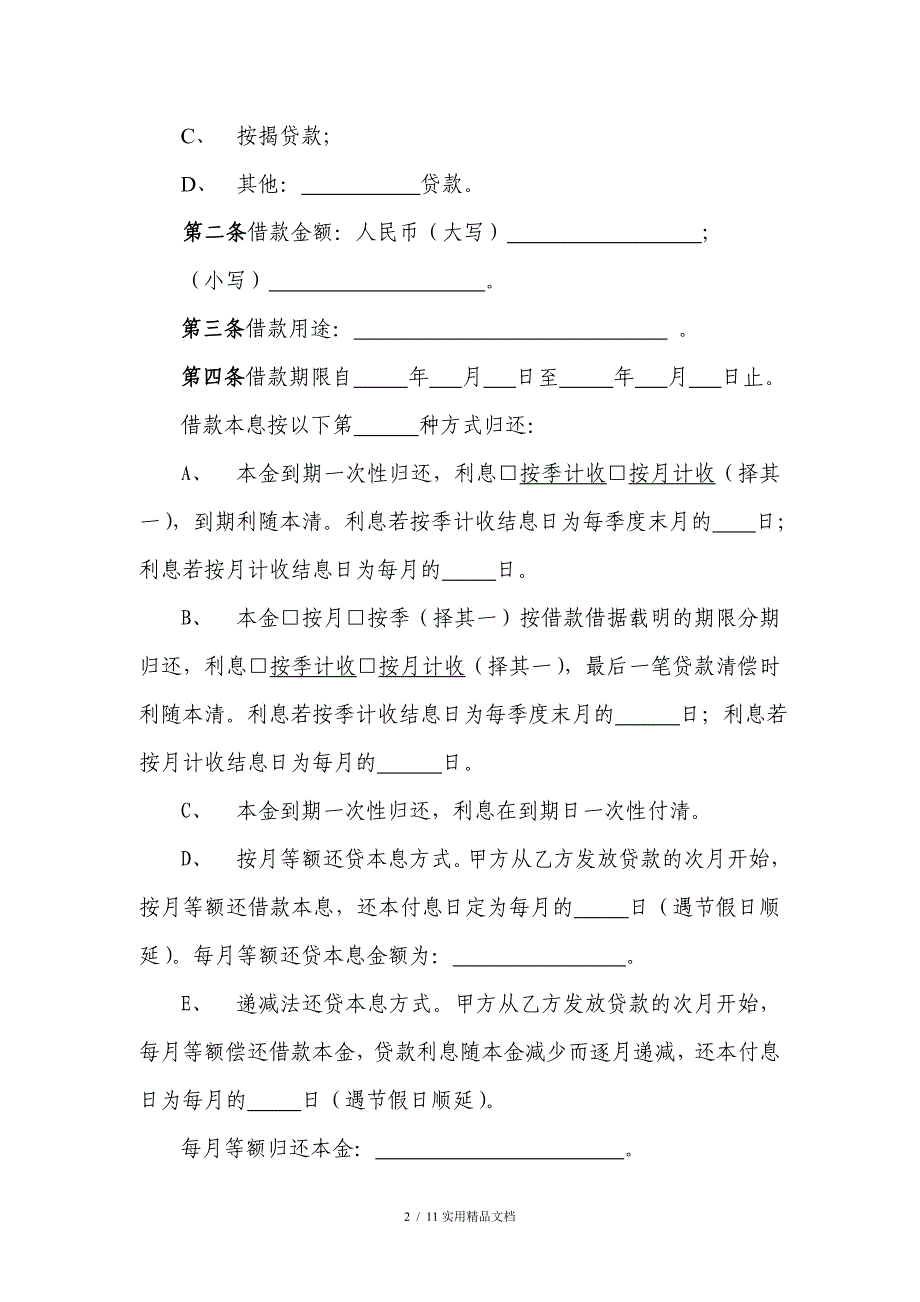 C、 按揭贷款；
D、 其他：___________贷款。
第二条借款金额：人民币（大写）__________________；
（小写）____________________。
第三条借款用途：_____________________________ 。
第四条借款期限自_____年___月___日至_____年___月___日止。
借款本息按以下第______种方式归还：
A、 本金到期一次性归还，利息□按季计收□按月计收（择其
一），到期利随本清。利息若按季计收结息日为每季度末月的____日；
利息若按月计收结息日为每月的_____日。
B、 本金□按月□按季（择其一）按借款借据载明的期限分期
归还，利息□按季计收□按月计收（择其一），最后一笔贷款清偿时
利随本清。利息若按季计收结息日为每季度末月的______日；利息若
按月计收结息日为每月的______日。
C、 本金到期一次性归还，利息在到期日一次性付清。
D、 按月等额还贷本息方式。甲方从乙方发放贷款的次月开始，
按月等额还借款本息，还本付息日定为每月的_____日（遇节假日顺
延）。每月等额还贷本息金额为：________________。
E、 递减法还贷本息方式。甲方从乙方发放贷款的次月开始，
每月等额偿还借款本金，贷款利息随本金减少而逐月递减，还本付息
日为每月的_____日（遇节假日顺延）。
每月等额归还本金：_______________________。
2 / 11实用精品文档